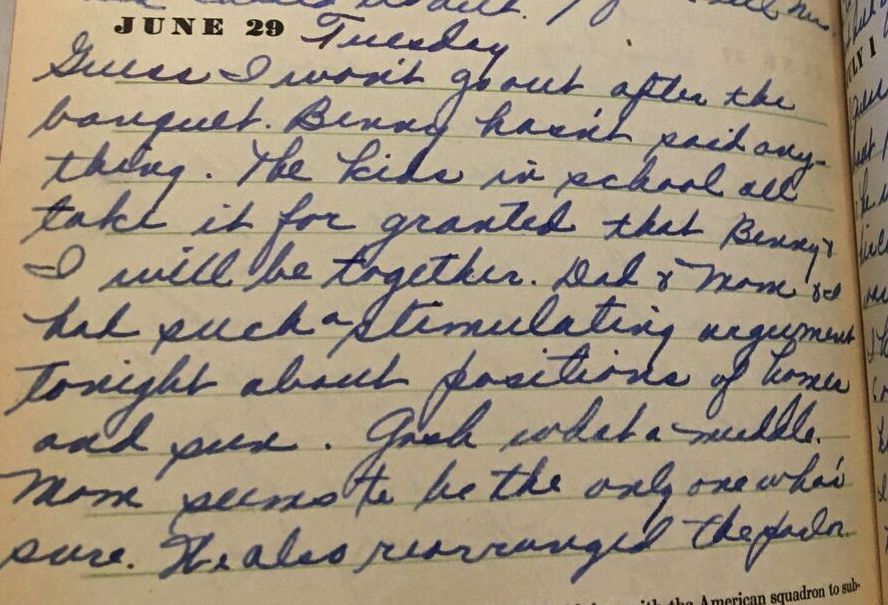 JUNE 29 Tuesday
Guess I won't go out after the
banquet. Benny hasn't said any-
thing. The kids in school all
take it for granted that Benny &
I will be together. Dad & Mom & I
had such a stimulating argument
tonight about positions of homes
and sun. Gosh what a muddle.
Mom seems to be the only one who's
sure. We also rearranged the parlor.
with the American squadron to sub-
JULY 1